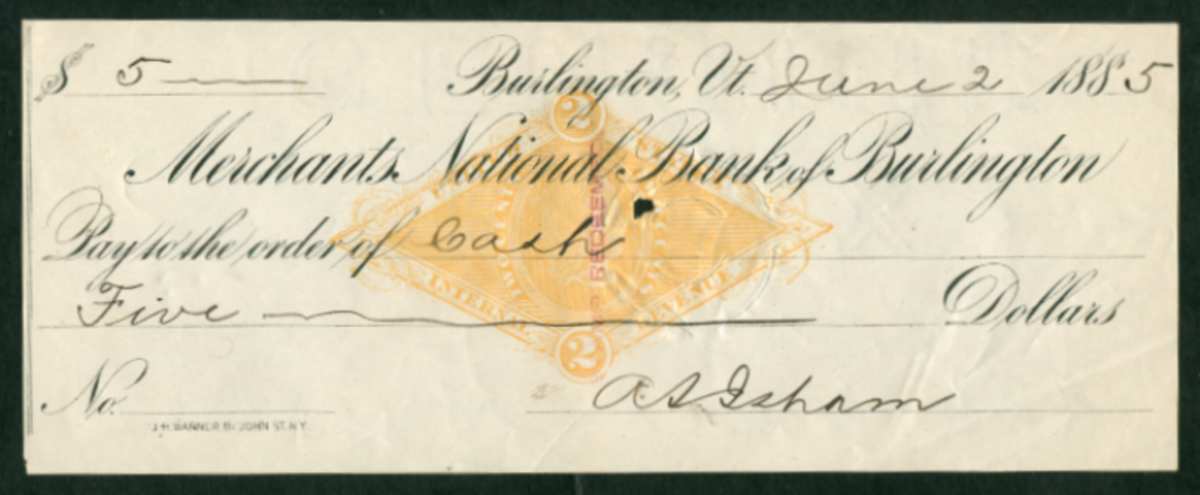 $ 5 Burlington, Vt. June 2 1885
Merchants National Bank of Burlington
Pay to the order of Cash
Five Dollars
No. A S Isham
J.H. WARNER JOHN ST. N.Y.
2
INTERNAL REVENUE
REDEEM
2